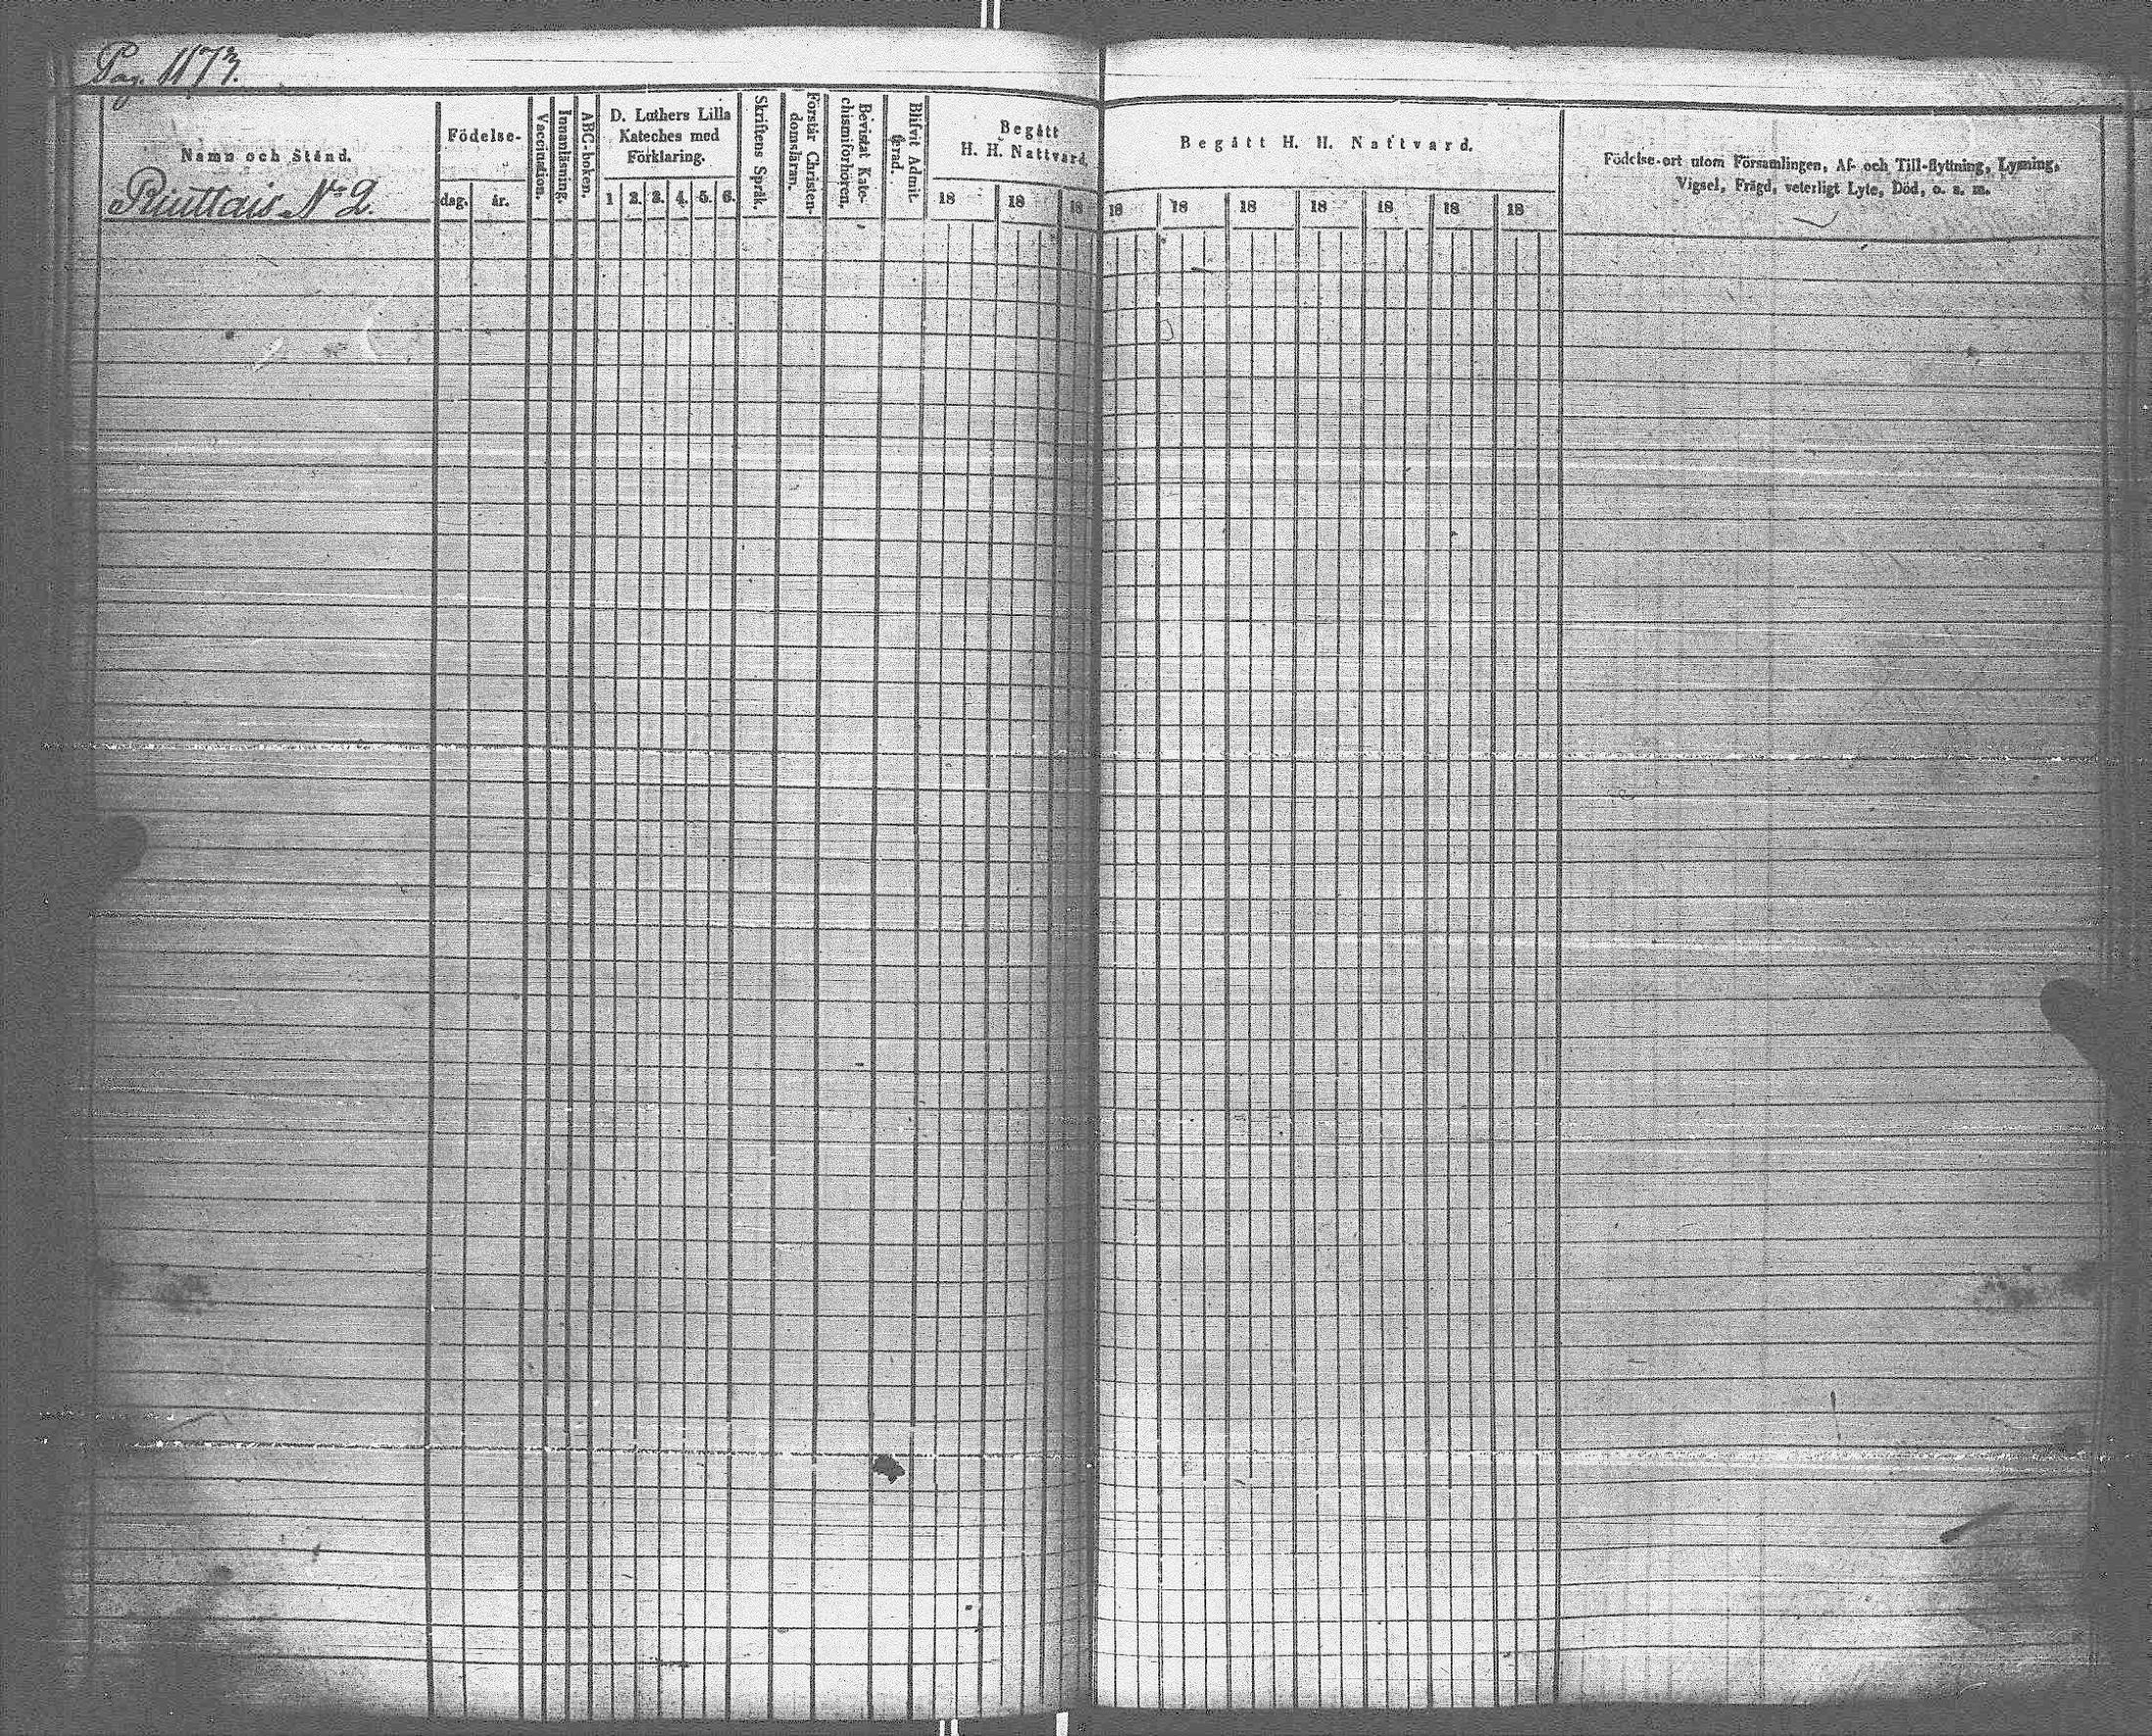 Pag. 1173.
Namn och Stånd.
Riuttais No 2.
Födelse-
dag. år.
Vaccination.
Innanläsning.
ABC-boken.
D. Luthers Lilla
Kateches med
Förklaring.
1 2. 3. 4. 5. 6.
Skriftens Språk.
Förstår Christen-
domsläran.
Bevistat Kate-
chismiförhören.
Blifvit Admit-
terad.
Begått
H. H. Nattvard.
18 18 18
Begått H. H. Nattvard.
18 18 18 18 18 18 18
Födelse-ort utom Församlingen, Af- och Till-flyttning, Lysning,
Vigsel, Frägd, veterligt Lyte, Död, o. s. m.